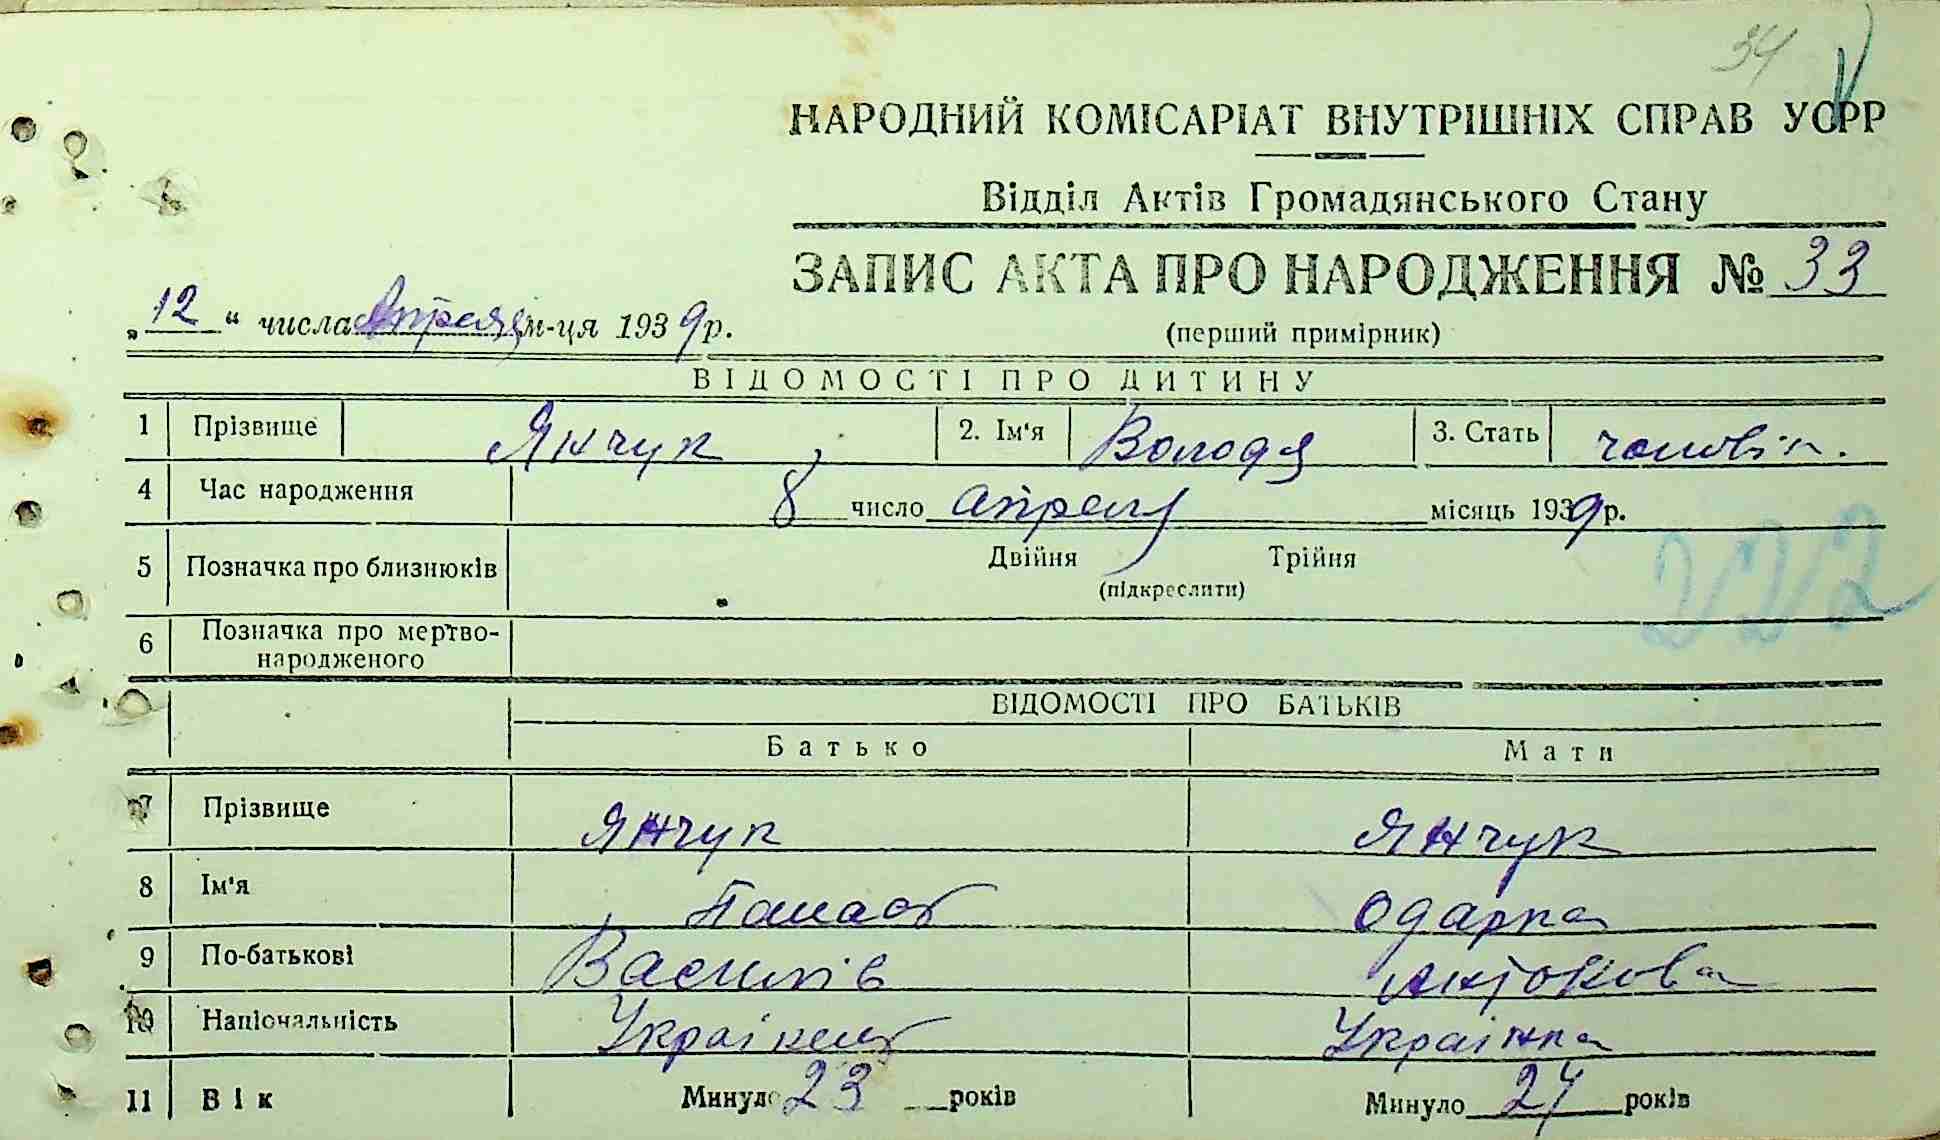 34
НАРОДНИЙ КОМІСАРІАТ ВНУТРІШНІХ СПРАВ УСРР
Відділ Актів Громадянського Стану
ЗАПИС АКТА ПРО НАРОДЖЕННЯ № 33
„12“ числа Апреля м-ця 1939 р.
(перший примірник)
ВІДОМОСТІ ПРО ДИТИНУ
1 Прізвище Янчук 2. Ім'я Володя 3. Стать чоловік.
4 Час народження 8 число апреля місяць 1939 р.
5 Позначка про близнюків Двійня Трійня
(підкреслити)
222
6 Позначка про мертво-
народженого
ВІДОМОСТІ ПРО БАТЬКІВ
Батько Мати
7 Прізвище Янчук Янчук
8 Ім'я Панас Одарка
9 По-батькові Васильів Антонова
10 Національність Українец Українка
11 Вік Минуло 23 років Минуло 24 років